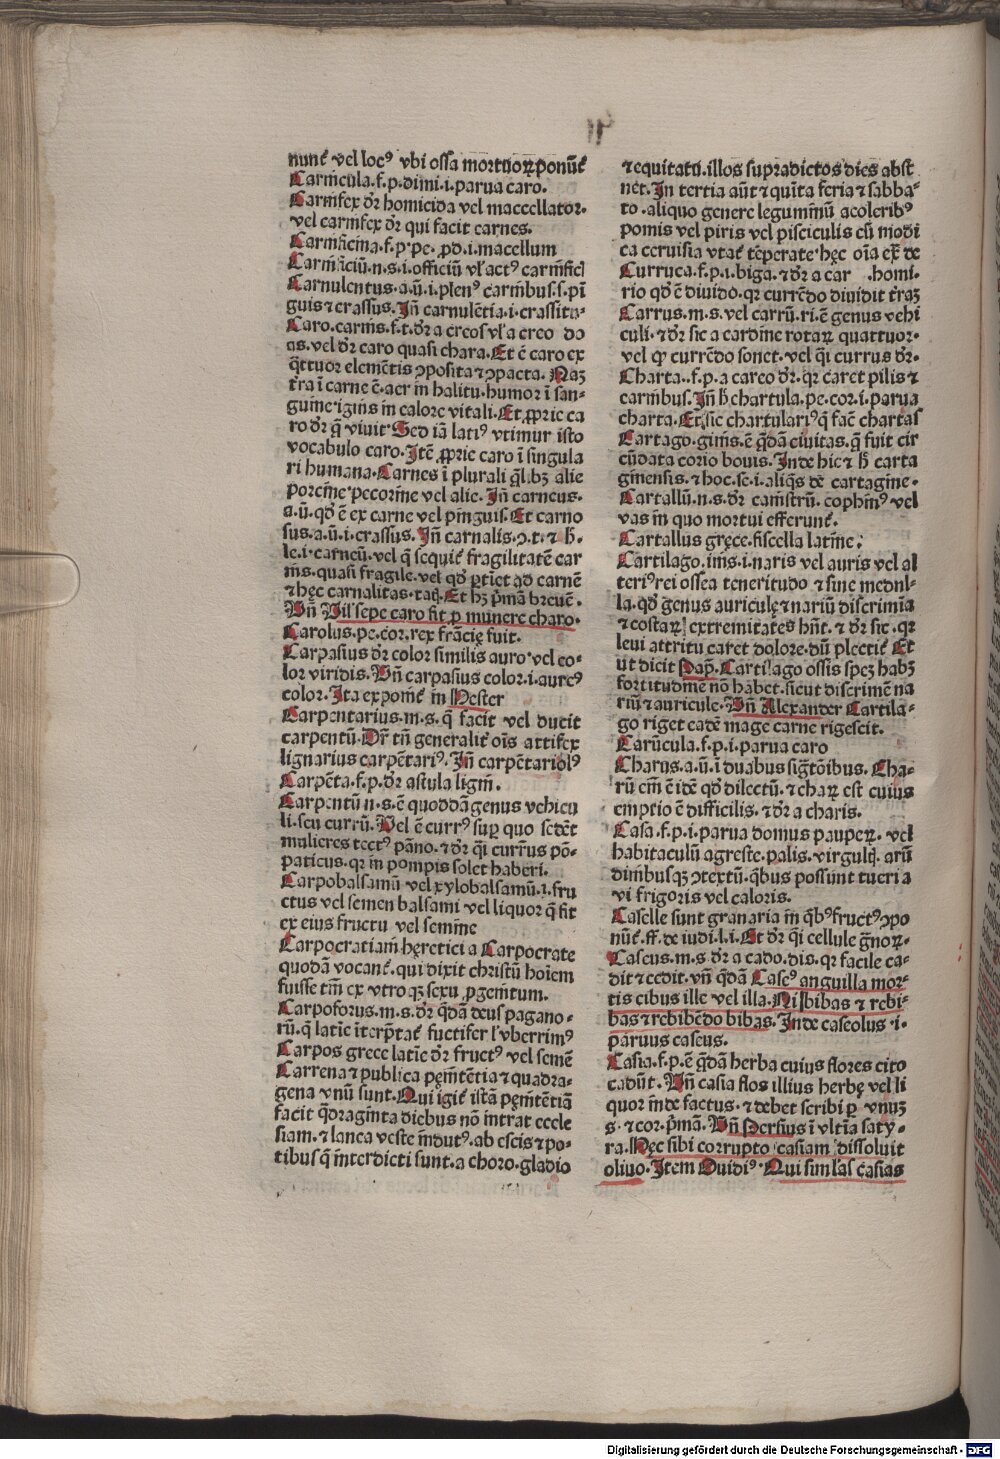 nunt᷑ vel locꝰ vbi ossa mortuoꝝ ponūt᷑
Carnicula.f.p.dimi.i.parua caro.
Carnifex dr̄ homicida vel maccellator.
vel carnifex dr̄ qui facit carnes.
Carnificina.f.p.pe.ꝓd.i.macellum
Carnificiū.n.s.i.officiū vl' actꝰ carnifici
Carnulentus.a.ū.i.plenꝰ carnibus.s.pi
guis et crassus. Jn̄ carnulētia.i.crassitu-
Caro.carnis.f.t.dr̄ a creos vl' a creo
as.vel dr̄ caro quasi chara. Et ē caro ex
q̄ttuor elemētis ↄposita et ↄpacta. Naꝫ
tr̄a ī carne ē. aer in halitu. humor ī san-
guine. ignis in calore vitali. Et ꝓprie ca
ro dr̄ q̄ viuit. Sed iā latiꝰ vtimur isto
vocabulo caro. Jtē ꝓprie caro ī singula
ri humana. Carnes ī plurali q̄libꝫ alie
porcine pecorine vel alie. Jn̄ carneus.
a.ū. qd̄ ē ex carne vel pinguis. Et carno
sus.a.ū.i.crassus. Jn̄ carnalis.ↄ.t. et h̄.
le.i.carneū. vel q̄ sequit᷑ fragilitatē car
nis. quasi fragile. vel qd̄ ꝑtinet ad carnē
et hęc carnalitas.taꝗ. Et hꝫ p̄mā breuē.
Vn̄ Vil' sepe caro fit ꝑ munere charo.
Carolus.pe.cor.rex frācię fuit.
Carpasius dr̄ color similis auro vel co-
lor viridis. Vn̄ carpasius color.i.aureꝰ
color. Jta exponit᷑ in Hester
Carpentarius.m.s.q̄ facit vel ducit
carpentū. Dr̄ tn̄ generalit᷑ oīs artifex
lignarius carpētariꝰ. Jn̄ carpētariolꝰ
Carpēta.f.p.dr̄ astula ligni.
Carpentū n.s.ē quoddā genus vehicu
li.seu currū. Vel ē currꝰ suꝑ quo sedēt
mulieres tectꝰ pāno. et dr̄ q̄i currus pō-
paticus. qr in pompis solet haberi.
Carpobalsamū vel xylobalsamū.i.fru
ctus vel semen balsami vel liquor q̄ fit
ex eius fructu vel semine
Carpocratiani hęretici a Carpocrate
quodā vocant᷑. qui dixit christū hoīem
fuisse tm̄ ex vtroꝗꝫ sexu ꝓgenitum.
Carpoforus.m.s.dr̄ q̄dā deus pagano-
rū. q̄ latīe īterp̄tat᷑ fuctifer l' vberrimꝰ
Carpos grece latīe dr̄ fructꝰ vel semē
Carrena et publica pęnitētia et quadra-
gena vnū sunt. Qui igit᷑ istā pęnitētiā
facit q̄draginta diebus nō intrat eccle
siam. et lanea veste indutꝰ. ab escis et po-
tibus q̄ interdicti sunt. a choro. gladio
et equitatu. illos supradictos dies abst
net. Jn tertia aūt et quīta feria et sabba-
to. aliquo genere leguminū a coleribꝰ
pomis vel piris vel pisciculis cū modi
ca ceruisia vtat᷑ tēperate. hęc oīa ex̄ de
Curruca.f.p.i.biga. et dr̄ a car .homi.
rio qd̄ ē diuido. qr currēdo diuidit tr̄aꝫ
Carrus.m.s. vel carrū.ri.ē genus vehi
culi. et dr̄ sic a cardine rotaꝝ quattuor.
vel qꝛ currēdo sonet. vel q̄i currus dr̄.
Charta..f.p.a careo dr̄. qr caret pilis et
carnibus. Jn̄ h̄ chartula.pe.cor.i.parua
charta. Et sic chartulariꝰ q̄ facit chartas
Cartago.ginis.ē q̄dā ciuitas. q̄ fuit cir
cūdata corio bouis. Jnde hic et h̄ carta
ginensis. et hoc.se.i.aliq̄s de cartagine.
Cartallū.n.s.dr̄ canistrū. cophinꝰ vel
vas in quo mortui efferunt᷑.
Cartallus gręce. fiscella latine:
Cartilago.inis.i.naris vel auris vel al
teriꝰ rei ossea teneritudo et sine medul-
la. qd̄ genus auriculę et nariū discrimīa
et costaꝝ extremitates hn̄t. et dr̄ sic. qr
leui attritu caret dolore. dū plectit᷑ Et
ut dicit Pap̄. Cartilago ossis speꝫ habꝫ
fortitudinē nō habet. sicut discrimē na
riū et auricule. Vn̄ Alexander Cartila-
go riget eadē mage carne rigescit.
Carūcula.f.p.i.parua caro
Charus.a.ū.ī duabus sigtōibus. Cha-
rū em̄ ē idē qd̄ dilectū. et charū est cuius
emptio ē difficilis. et dr̄ a charis.
Casa.f.p.i.parua domus pauperꝝ. vel
habitaculū agreste. palis. virgulꝗ. arū
dinibusꝗꝫ ↄtextū. q̄bus possunt tueri a
vi frigoris vel caloris.
Caselle sunt granaria in q̄bꝰ fructꝰ ↄpo
nūt᷑. ff. de iudi.l.i. Et dr̄ q̄i cellule ḡnoꝝ.
Caseus.m.s.dr̄ a cado.dis. qr facile ca-
dit et cedit. vn̄ q̄dā Caseꝰ anguilla mor-
tis cibus ille vel illa. Ni bibas et rebi-
bas et rebibēdo bibas. Jnde caseolus .i.
paruus caseus.
Casia.f.p.ē q̄dā herba cuius flores cito
cadūt. Vn̄ casia flos illius herbę vel li
quor inde factus. et debet scribi ꝑ vnuꝫ
s. et cor.p̄mā. Vn̄ Persius ī vltīa saty-
ra. Hęc sibi corrupto casiam dissoluit
oliuo. Jtem Ouidiꝰ. Qui similas casias
Digitalisierung gefördert durch die Deutsche Forschungsgemeinschaft - DFG